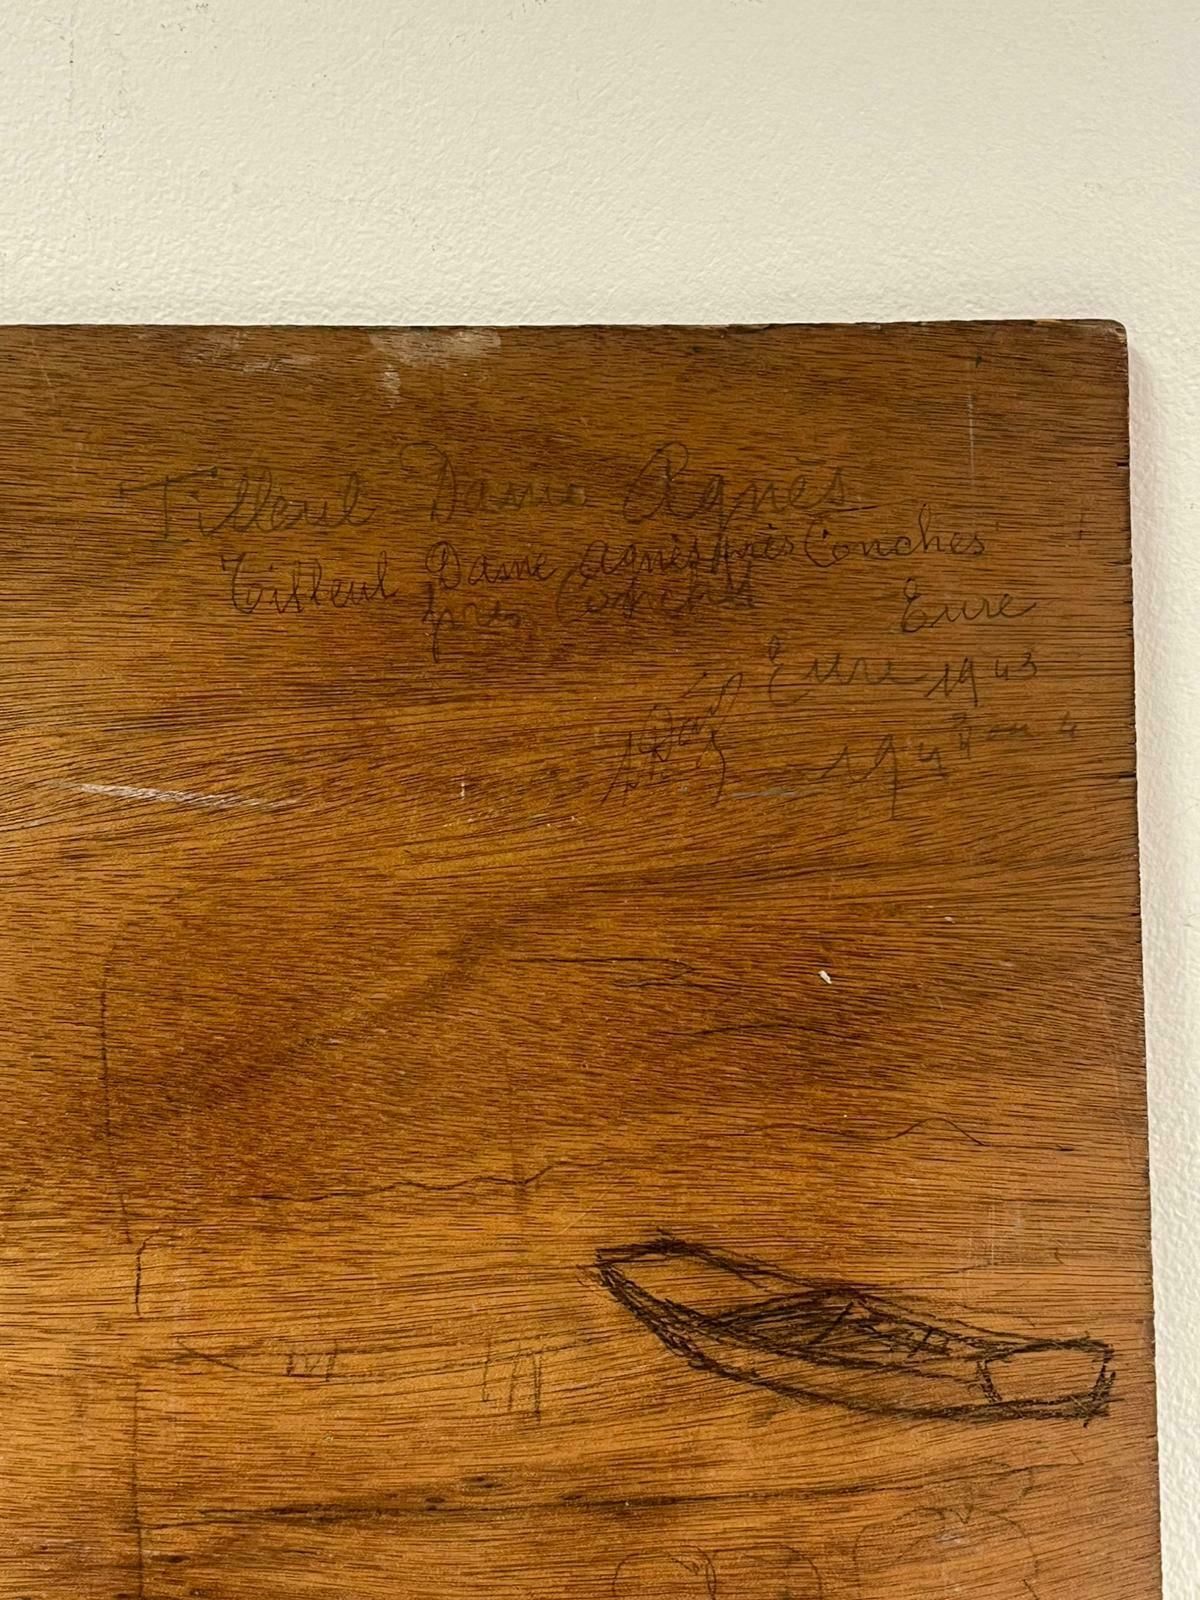 Tilleul Dame Agnès
Tilleul Dame Agnès près Conches
près Conches
Eure
Eure 1943
194